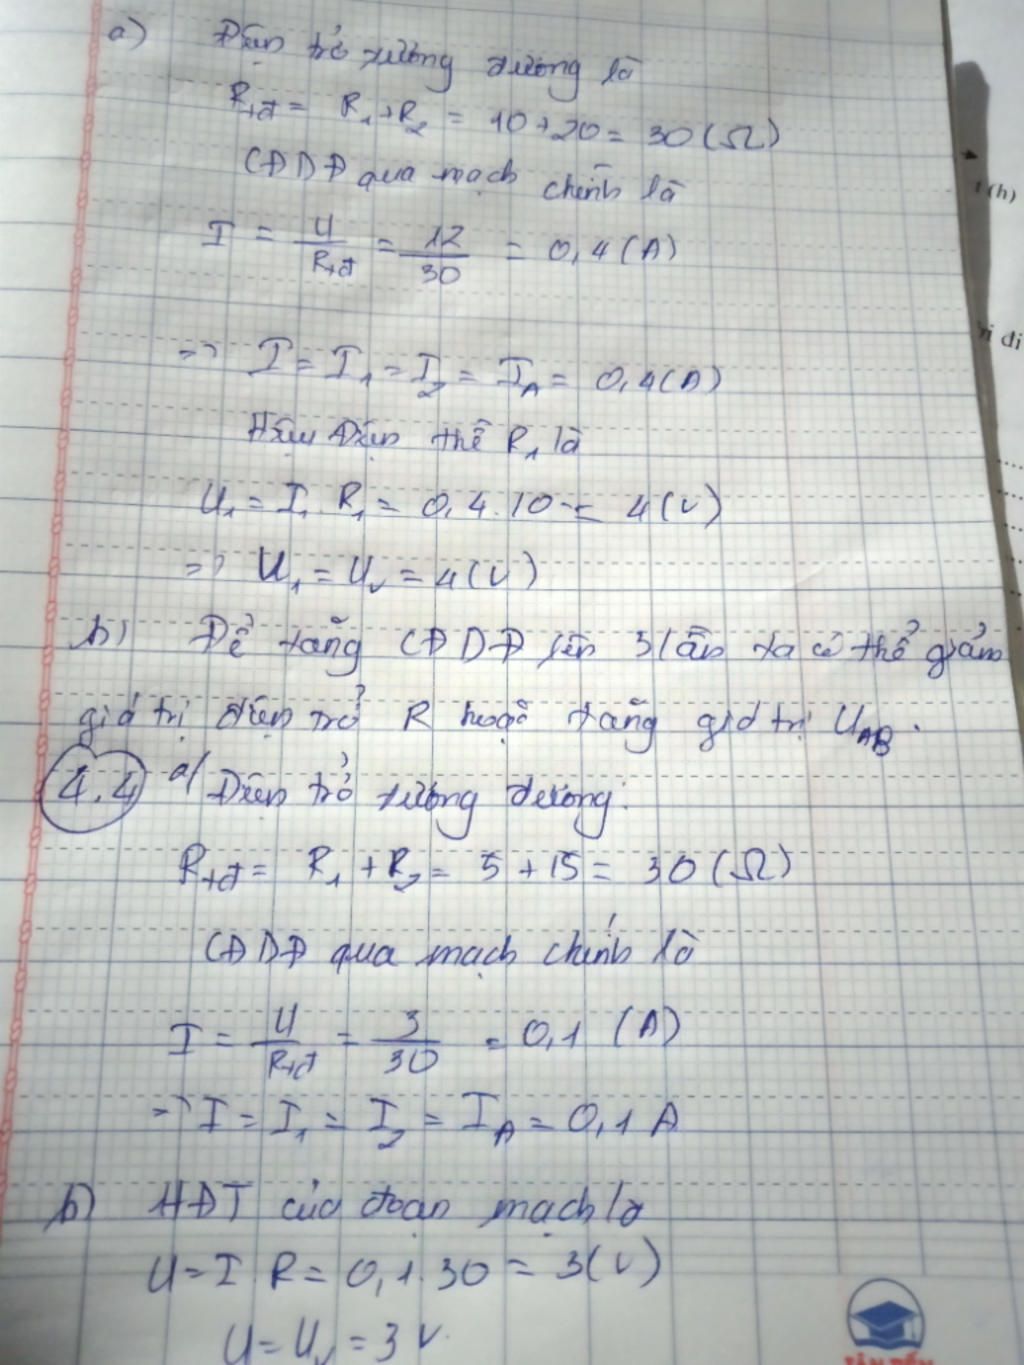 a) Điện trở tương đương là
Rtđ = R1+R2 = 10+20= 30 (Ω)
CĐDĐ qua mạch chính là
t (h)
I = U/Rtđ = 12/30 = 0,4 (A)
=> I = I1 = I2 = IA = 0,4(A)
Hiệu điện thế R1 là
U1 = I1 . R1 = 0,4.10 = 4(V)
=> U1 = Uv = 4(V)
b) Để tăng CĐDĐ lên 3 lần ta có thể giảm
giá trị điện trở R hoặc tăng giá trị UAB.
4.4 a/ Điện trở tương đương:
Rtđ = R1 + R2 = 5 + 15 = 30 (Ω)
CĐDĐ qua mạch chính là
I = U/Rtđ = 3/30 = 0,1 (A)
=> I = I1 = I2 = IA = 0,1 A
b) HĐT của đoạn mạch là
U = I . R = 0,1.30 = 3(V)
U = Uv = 3 V.